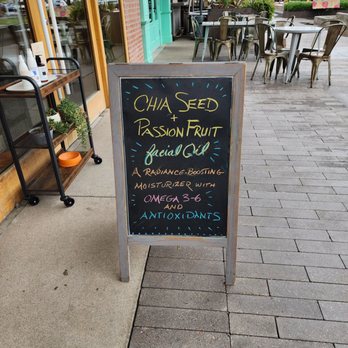 CHIA SEED
+
PASSION FRUIT
facial Oil
A RADIANCE-BOOSTING
MOISTURIZER WITH
OMEGA 3-6
AND
ANTIOXIDANTS